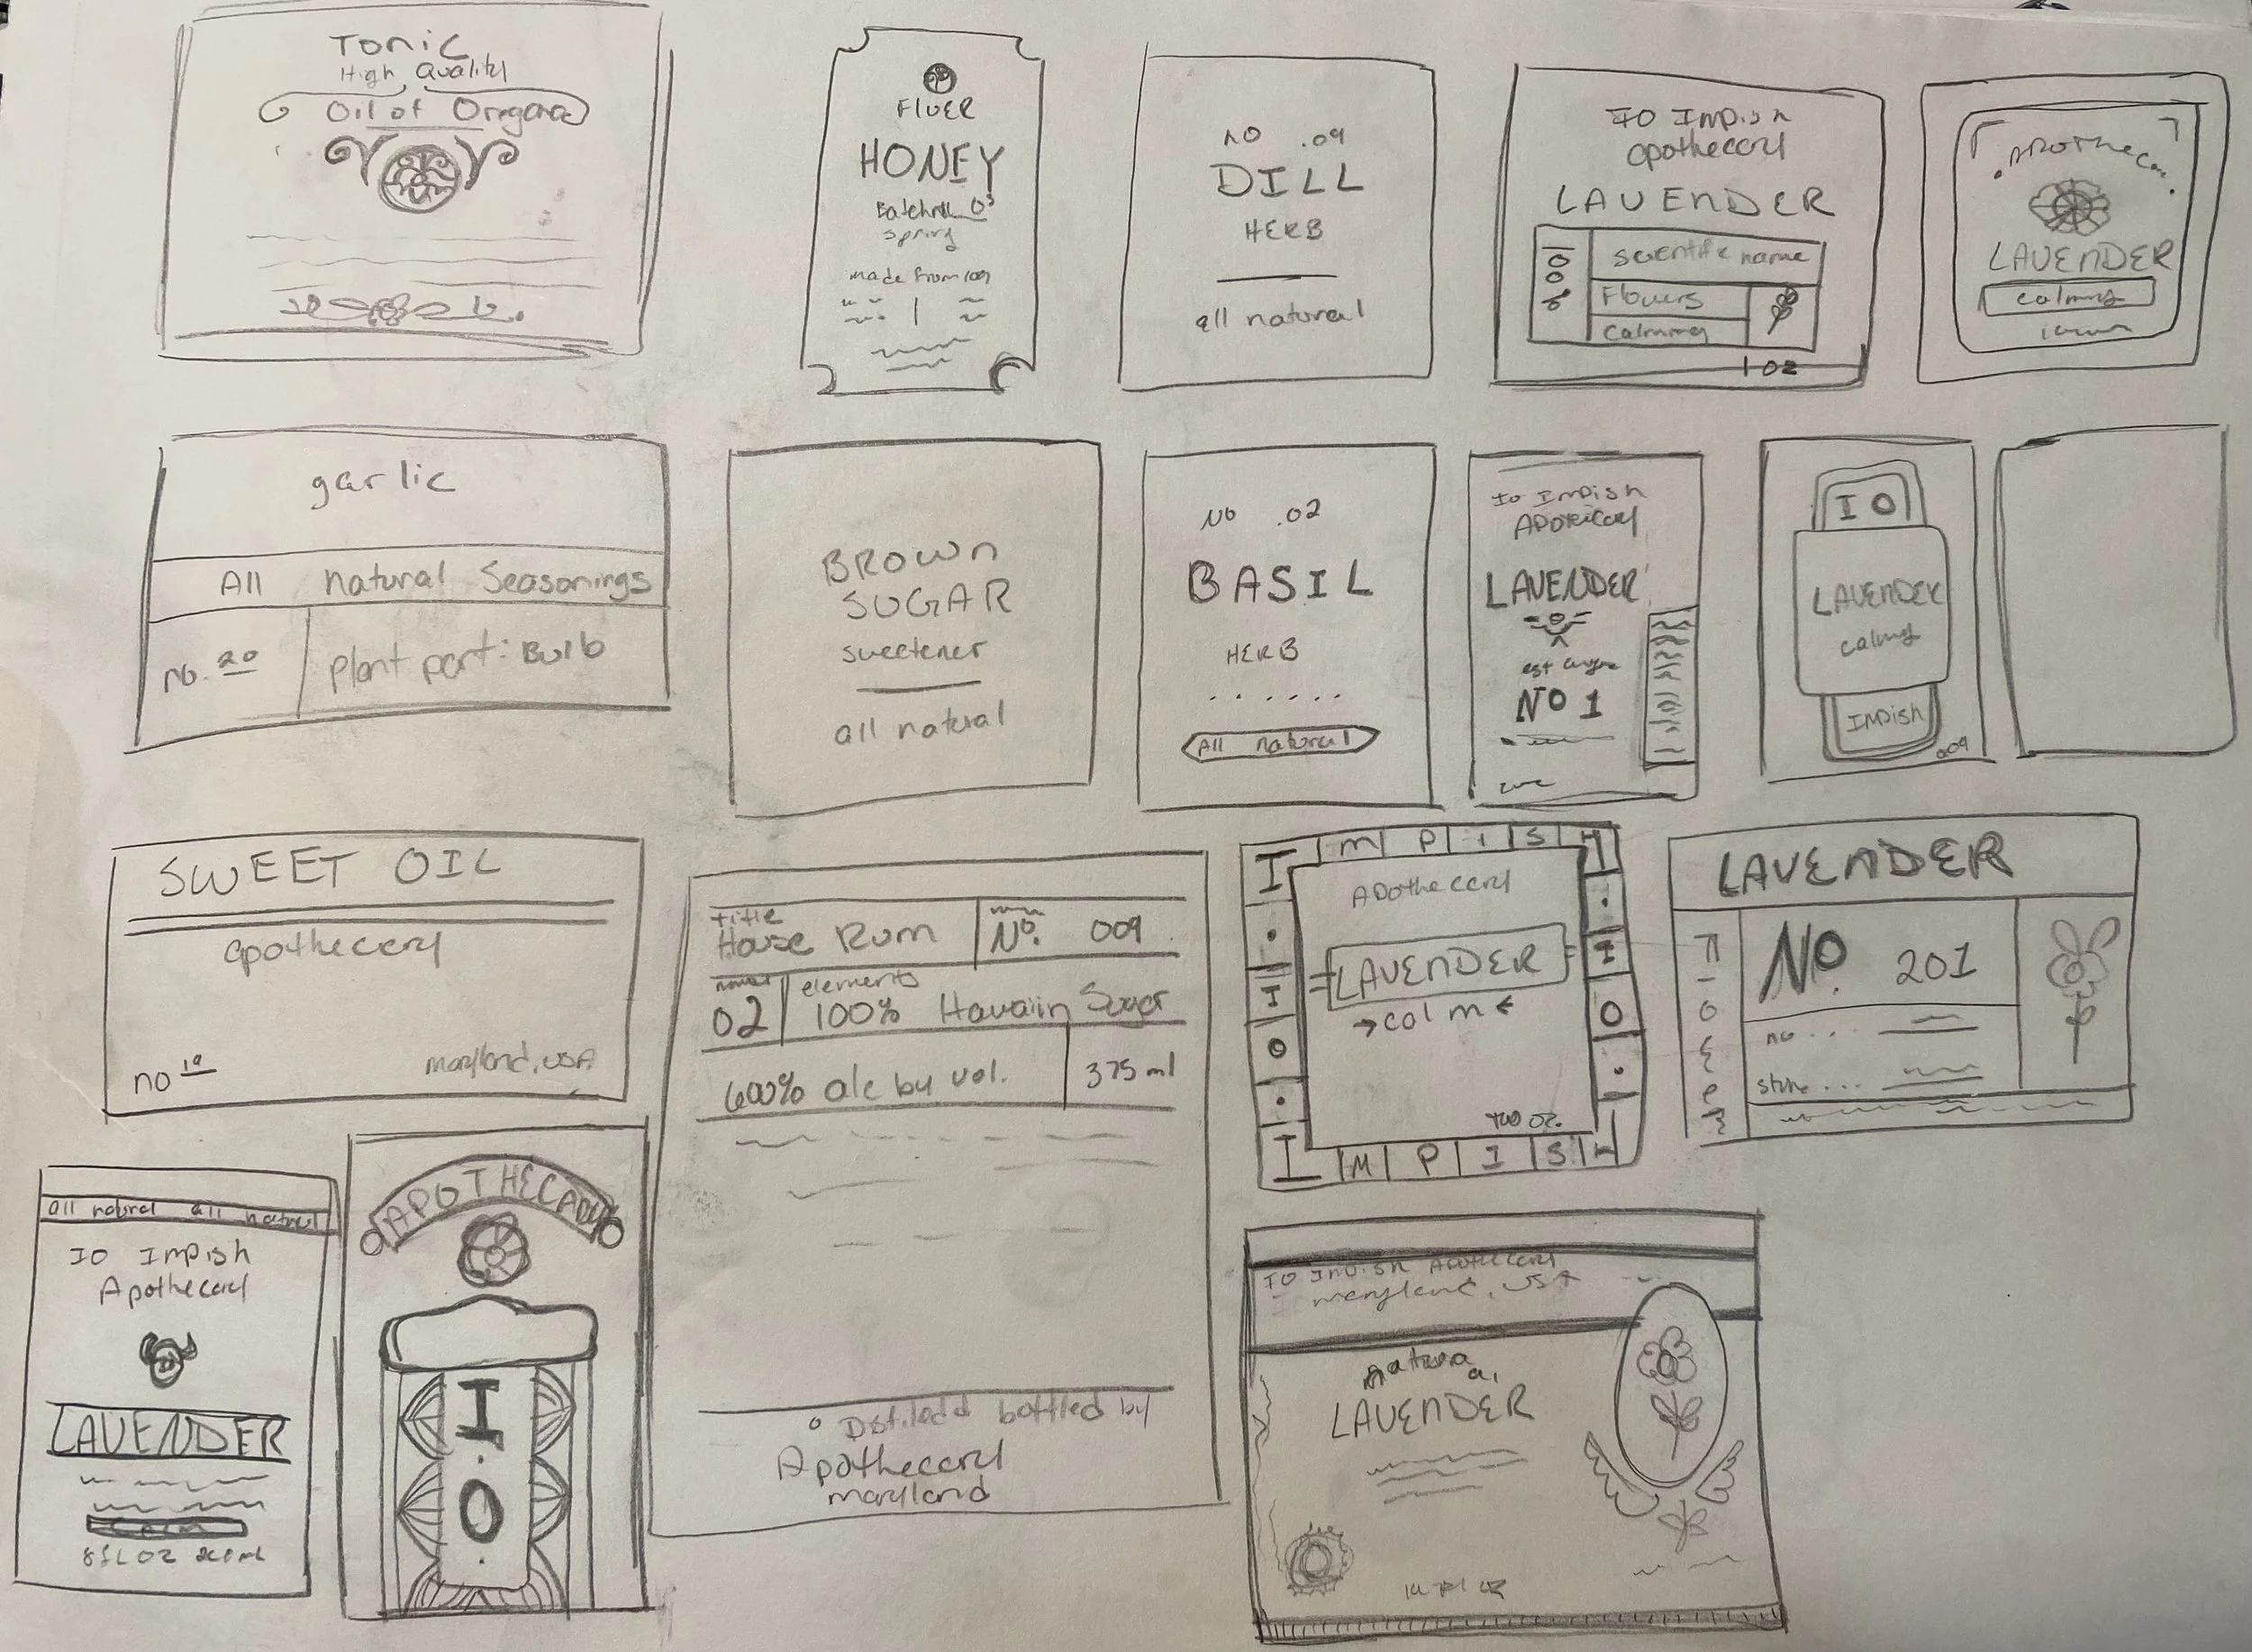 TONIC
High Quality
Oil of Oregano
FLUER
HONEY
Spring
made from
NO .09
DILL
HERB
all natural
IO Impish
apothecary
LAVENDER
scientific name
Flowers
calming
1 oz
APOTHECA
LAVENDER
calming
garlic
All natural Seasonings
no. 20
plant part: Bulb
BROWN
SUGAR
sweetener
all natural
NO .02
BASIL
HERB
All natural
IO IMPISH
LAVENDER
est
NO 1
IO
LAVENDER
calmg
IMPISH
009
SWEET OIL
apothecary
no 19
maryland, USA
title
House Rum
No. 009
02
elements
100% Hawaiin Sugar
600% alc by vol.
375 ml
bottled by
Apothecary
maryland
IMPISH
Apothecary
LAVENDER
calm
I
O
I
O
TWO OZ.
IMPISH
LAVENDER
No. 201
no...
all natural all natural
IO Impish
Apothecary
LAVENDER
calm
8 fL OZ
APOTHECARY
I.O.
IO Impish Apothecary
maryland, USA
LAVENDER